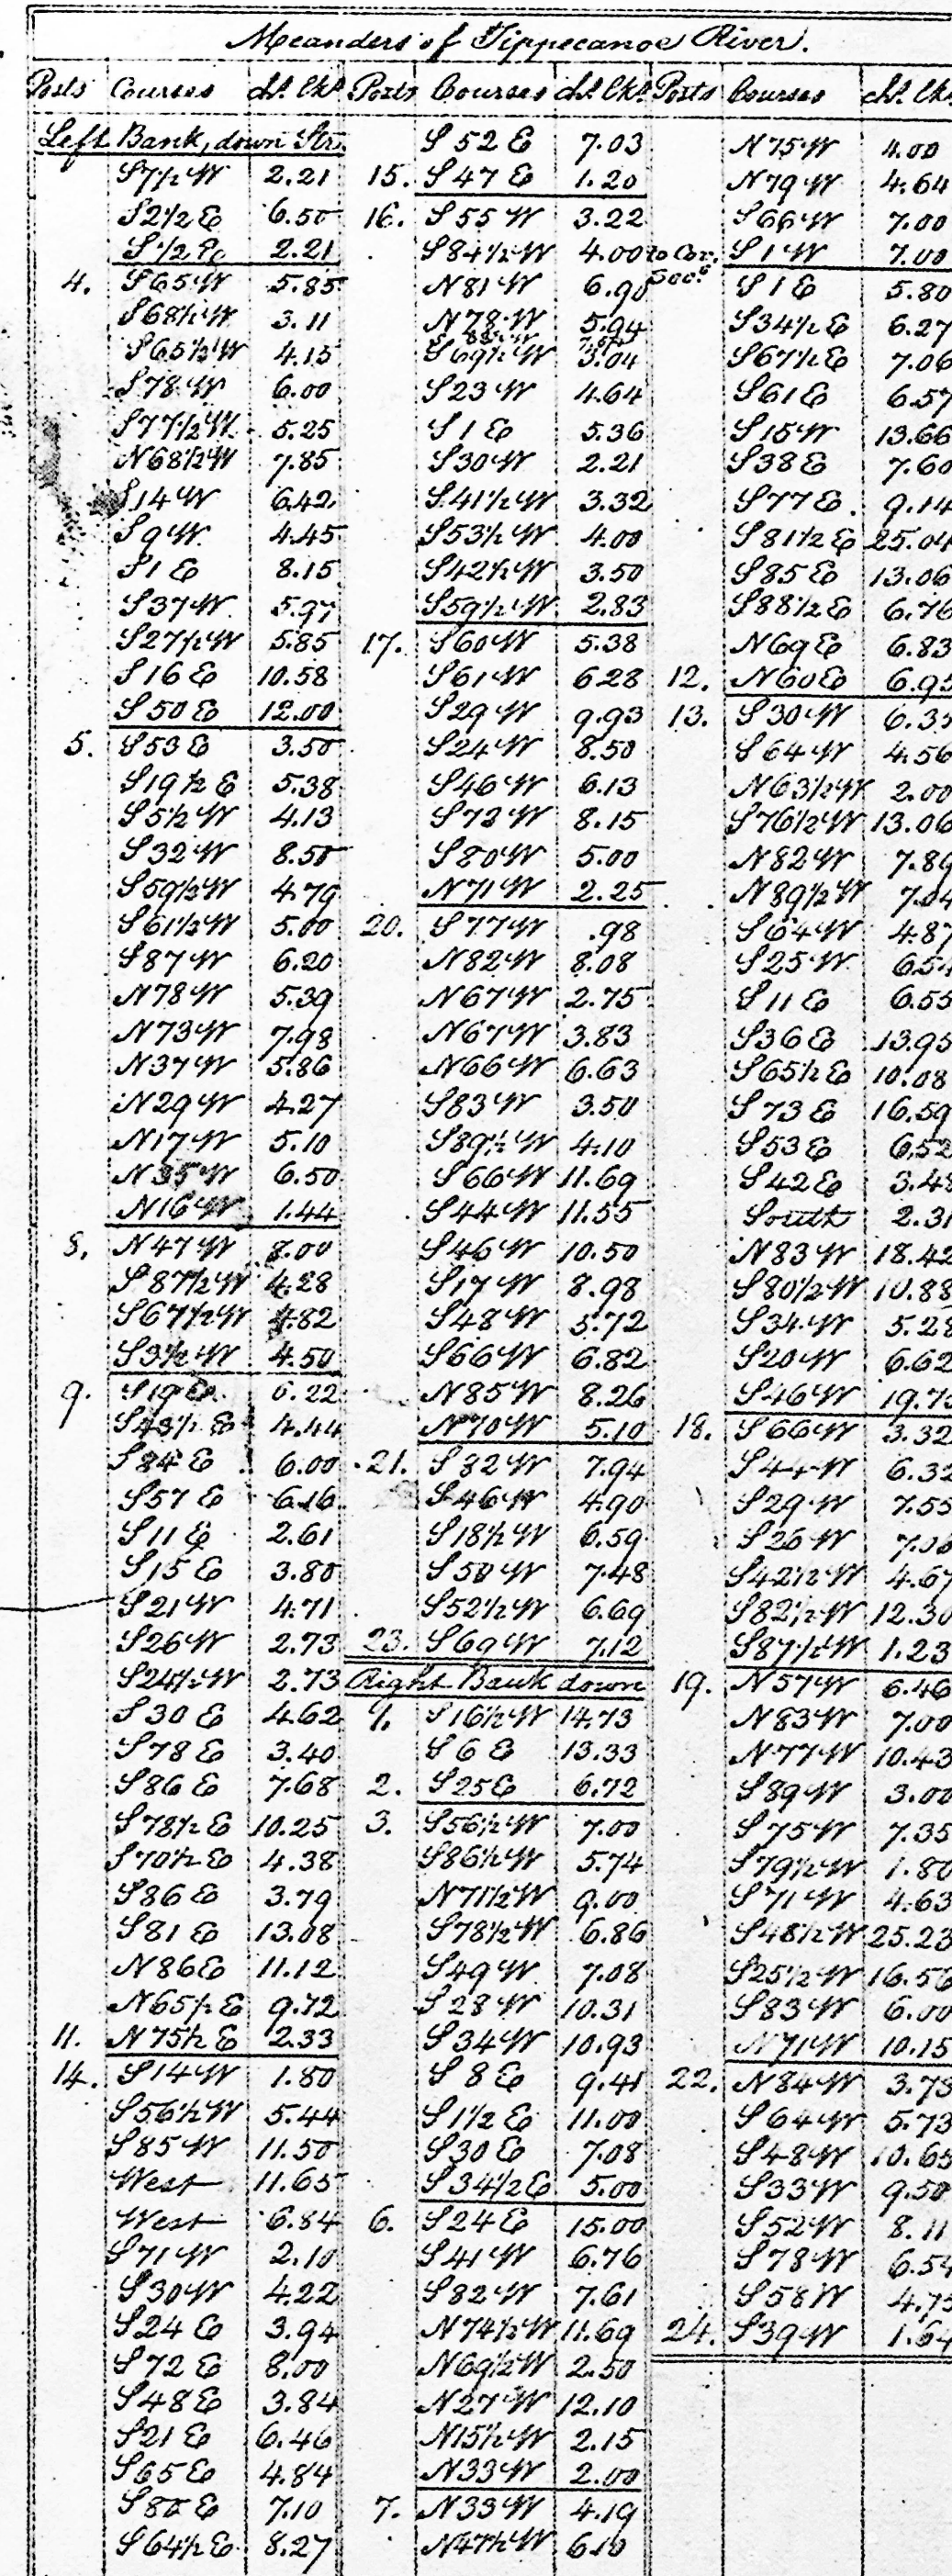 Meanders of Tippecanoe River.
Posts Courses chs. lks.
Left Bank, down Str.
S7½W 2.21
S2½E 6.50
S½E 2.21
4. S65W 5.85
S68½W 3.11
S65½W 4.15
S78W 6.00
S77½W 5.25
N68½W 7.85
S14W 6.42
S9W 4.45
S1E 8.15
S37W 5.97
S27½W 5.85
S16E 10.58
S50E 12.00
5. S53E 3.50
S19½E 5.38
S5½W 4.13
S32W 8.50
S59½W 4.79
S61½W 5.00
S87W 6.20
N78W 5.39
N73W 7.98
N37W 5.86
N29W 4.27
N17W 5.10
N35W 6.50
N16W 1.44
8. N47W 8.00
S87½W 4.28
S67½W 4.82
S3½W 4.50
9. S19E 6.22
S43½E 4.44
S84E 6.00
S57E 6.16
S11E 2.61
S15E 3.80
S21W 4.71
S26W 2.73
S24½W 2.73
S30E 4.62
S78E 3.40
S86E 7.68
S78½E 10.25
S70½E 4.38
S86E 3.79
S81E 13.08
N86E 11.12
N65½E 9.72
11. N75½E 2.33
14. S14W 1.80
S56½W 5.44
S85W 11.50
West 11.65
West 6.84
S71W 2.10
S30W 4.22
S24E 3.94
S72E 8.00
S48E 3.84
S21E 6.46
S65E 4.84
S80E 7.10
S64½E 8.27
Posts Courses chs. lks.
S52E 7.03
15. S47E 1.20
16. S55W 3.22
S84½W 4.00
N81W 6.90
N78W 5.94
S69½W 3.04
S23W 4.64
S1E 5.36
S30W 2.21
S41½W 3.32
S53½W 4.00
S42½W 3.50
S59½W 2.83
17. S60W 5.38
S61W 6.28
S29W 9.93
S24W 8.50
S46W 6.13
S73W 8.15
S80W 5.00
N71W 2.25
20. S77W .98
N82W 8.08
N67W 2.75
N67W 3.83
N66W 6.63
S83W 3.50
S89½W 4.10
S66W 11.69
S44W 11.55
S46W 10.50
S17W 8.98
S48W 5.72
S66W 6.82
N85W 8.26
N70W 5.10
21. S82W 7.94
S46W 4.90
S18½W 6.59
S50W 7.48
S52½W 6.69
23. S69W 7.12
Right Bank down
1. S16½W 14.73
S6E 13.33
2. S25E 6.72
3. S56½W 7.00
S86½W 5.74
N71½W 9.00
S78½W 6.86
S49W 7.08
S28W 10.31
S34W 10.93
S8E 9.41
S1½E 11.00
S30E 7.08
S34½E 5.00
6. S24E 15.00
S41W 6.76
S82W 7.61
N74½W 11.69
N69½W 2.50
N27W 12.10
N15½W 2.15
N33W 2.00
7. N33W 4.19
N47½W 6.10
Posts Courses chs. lks.
N75W 4.00
N79W 4.64
S66W 7.00
to Cor. Secs. S1W 7.00
S1E 5.80
S34½E 6.27
S67½E 7.06
S61E 6.57
S15W 13.66
S38E 7.60
S77E 9.14
S81½E 25.04
S85E 13.06
S88½E 6.76
N69E 6.83
12. N60E
13. S30W
S64W 4.56
N63½W 2.00
S76½W 13.06
N82W 7.89
N89½W 7.04
S64W 4.87
S25W
S11E 6.55
S36E 13.95
S65½E 10.08
S73E 16.59
S53E 6.52
S42E 3.48
South 2.31
N83W 18.42
S80½W 10.88
S34W 5.28
S20W 6.62
S46W
18. S66W 3.32
S44W 6.32
S29W 7.55
S26W
S42½W 4.67
S82½W 12.30
S87½W 1.23
19. N57W 6.46
N83W 7.00
N77W 10.43
S89W 3.00
S75W 7.35
S79½W 1.80
S71W 4.63
S48½W 25.23
S25½W
S83W 6.00
N71W 10.15
22. N84W
S64W 5.73
S48W 10.65
S33W 9.50
S52W 8.11
S78W 6.54
S58W
24. S39W 1.64